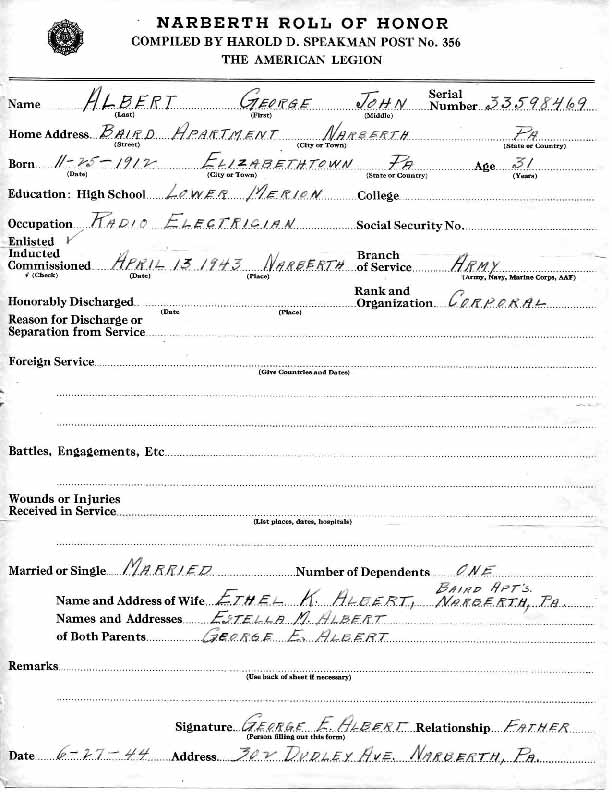 NARBERTH ROLL OF HONOR
COMPILED BY HAROLD D. SPEAKMAN POST No. 356
THE AMERICAN LEGION
Name ALBERT GEORGE JOHN Serial Number 33598469
(Last) (First) (Middle)
Home Address BAIRD APARTMENT NARBERTH PA
(Street) (City or Town) (State or Country)
Born 11-25-1912 ELIZABETHTOWN PA Age 31
(Date) (City or Town) (State or Country) (Years)
Education: High School LOWER MERION College
Occupation RADIO ELECTRICIAN Social Security No.
Enlisted ✓
Inducted
Commissioned APRIL 13 1943 NARBERTH Branch of Service ARMY
(Check) (Date) (Place) (Army, Navy, Marine Corps, AAF)
Honorably Discharged Rank and Organization CORPORAL
(Date (Place)
Reason for Discharge or
Separation from Service
Foreign Service
(Give Countries and Dates)
Battles, Engagements, Etc
Wounds or Injuries
Received in Service
(List places, dates, hospitals)
Married or Single MARRIED Number of Dependents ONE
Name and Address of Wife ETHEL K. ALBERT, BAIRD APT'S. NARBERTH, PA.
Names and Addresses ESTELLA M. ALBERT
of Both Parents GEORGE E. ALBERT
Remarks
(Use back of sheet if necessary)
Signature GEORGE E. ALBERT Relationship FATHER
(Person filling out this form)
Date 6-27-44 Address 302 DUDLEY AVE. NARBERTH, PA.